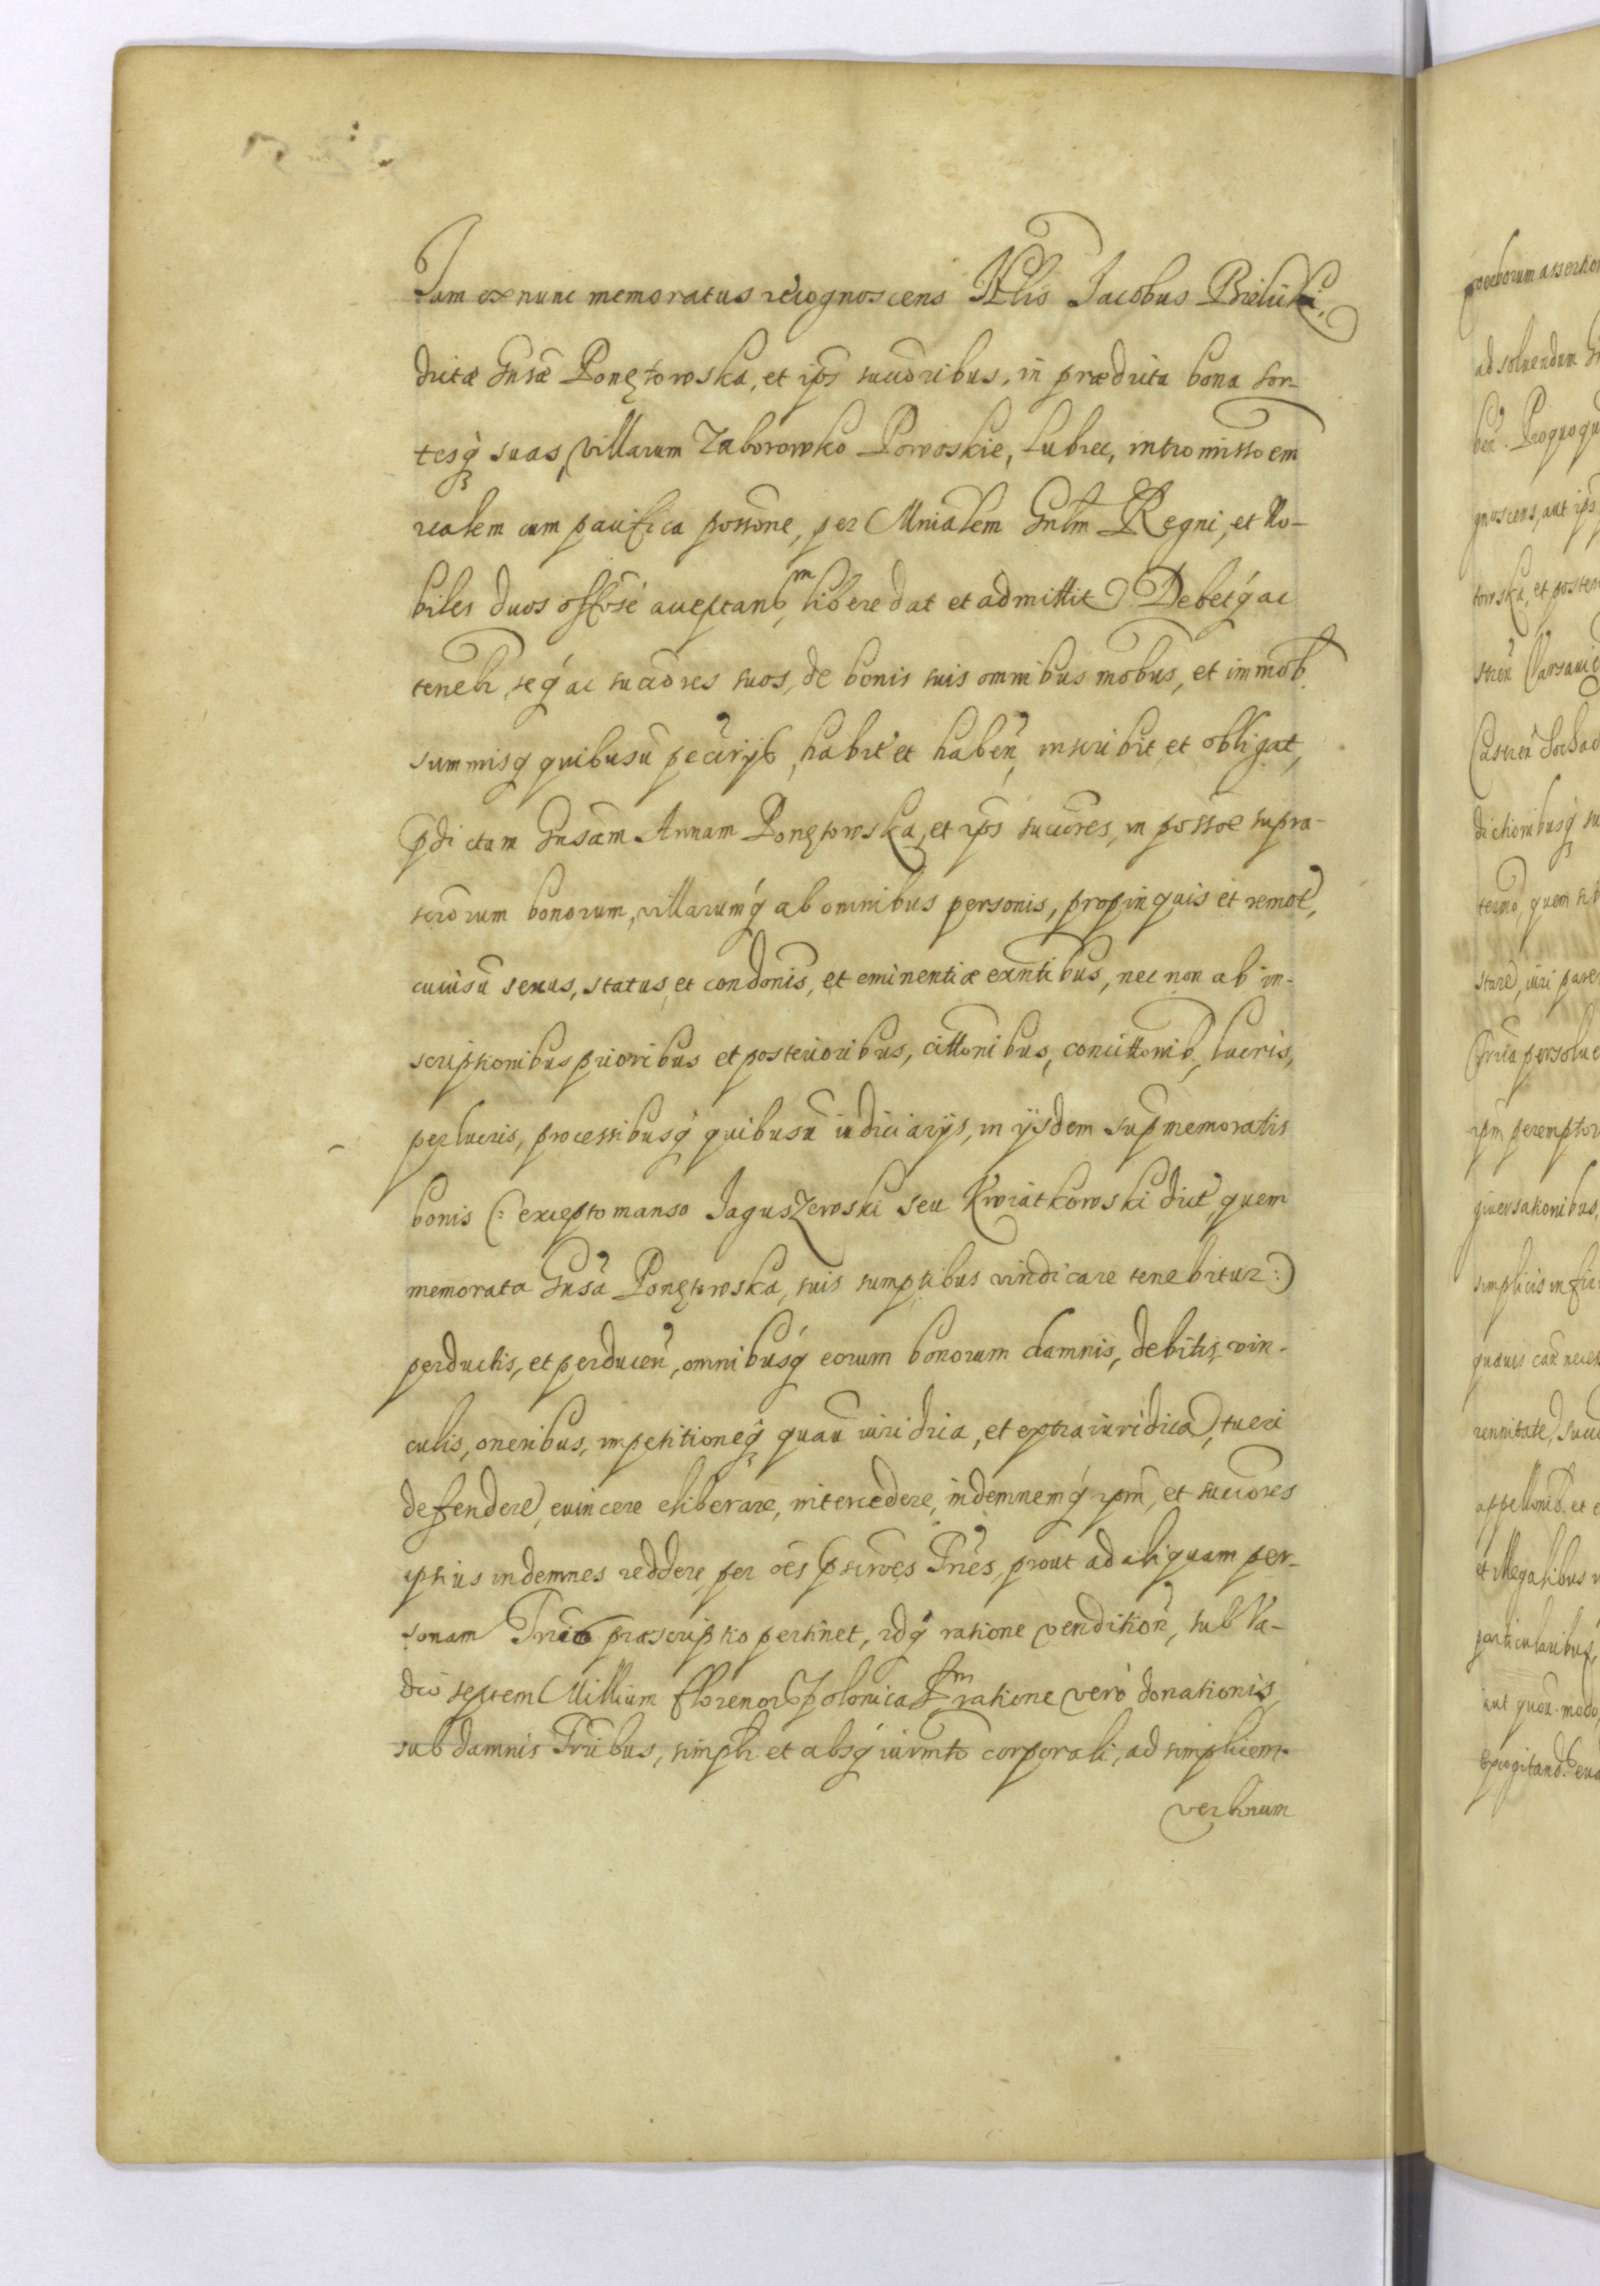 Jam ex nunc memoratus recognoscens Nblis Jacobus Bielicki,
dictæ Gnsæ Ponętowska, et ips succoribus, in prædicta bona sor-
tesq suas, villarum Zaborowko Powoskie, Lubiec, intromissōem
realem cum pacifica possōne, per Mnialem Gnlm Regni, et No-
biles duos offōse acceptand, libere dat et admittit. Debetq́ ac
tenebr, seq́ ac succōres suos, de bonis suis omnibus mobus, et immob.
summisq quibusū pecūrijs, habit et haben, inscribit et obligat,
pdictam Gnsam Annam Ponętowska, et ips succores, in possōe supra-
scrōrum bonorum, villarumq́ ab omnibus personis, propinquis et remot,
cuiusū sexus, status, et condonis, et eminentiæ exntibus, nec non ab in-
scriptionibus prioribus et posterioribus, cittonibus, concittonib, lucris,
perlucris, processibusq́ quibusū iudiciarijs, in ijsdem sup memoratis
bonis (: excepto manso Jaguszewski seu Kwiatkowski dict, quem
memorata Gnsa Ponętowska, suis sumptibus vindicare tenebitur :)
perductis, et perducen, omnibusq́ eorum bonorum damnis, debitis, vin-
culis, oneribus, impetitioneq́ quauū iuridica, et extraiuridica, tueri
defendere, euincere eliberare, intercedere, indemnemq́ ipm, et succores
ipsius indemnes reddere, per oēs pscrōes Trres, prout ad aliquam per-
sonam præscriptio pertinet, idq́ ratione vendition, sub Va-
dio septem Millium florenor polonica ratione verò donationis,
sub damnis Trribus, simpli et absq́ iurmto corporali, ad simplicem
verborum
ad soluendum
gnoscens, aut ips
towska, et
dictionibusq́
stare, iuri
persolue
ipm perempto
giuersationibus,
simplicis
appellonib. et
particularibus,